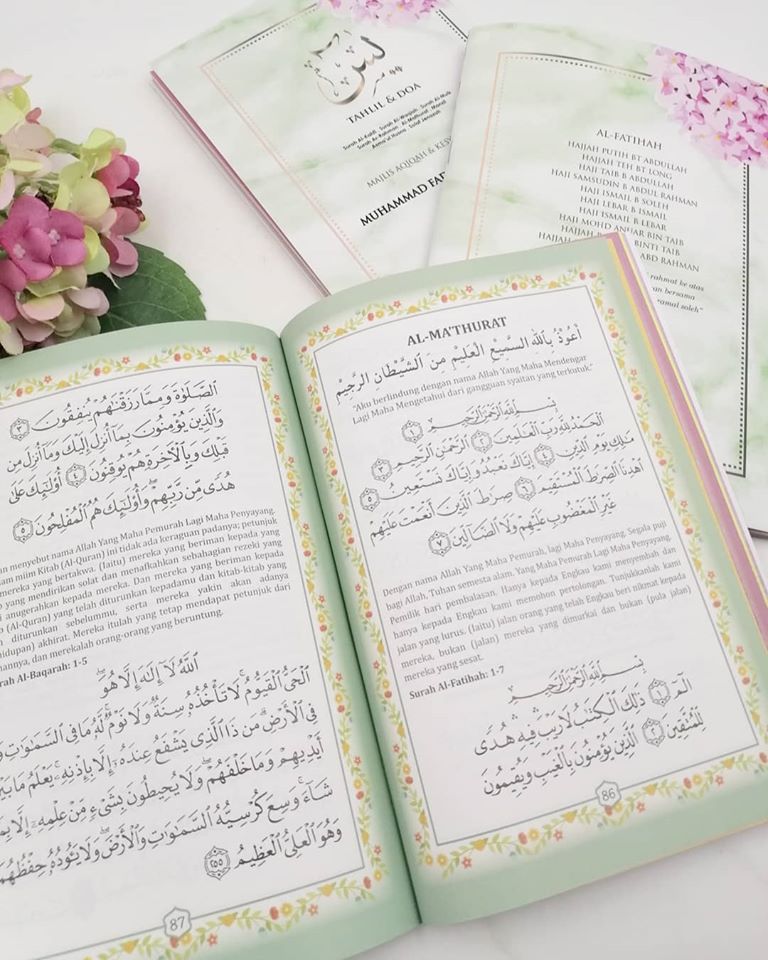 يس
TAHLIL & DOA
Surah Al-Kahfi · Surah Al-Waqiah · Surah Al-Mulk
Surah Ar-Rahman · Al-Mathurat · Manzil
Asma'ul Husna · Solat Jenazah
MAJLIS AQIQAH & KESY
MUHAMMAD FA
AL-FATIHAH
HAJJAH PUTIH BT ABDULLAH
HAJJAH TEH BT LONG
HAJI TAIB B ABDULLAH
HAJI SAMSUDIN B ABDUL RAHMAN
HAJI ISMAIL B SOLEH
HAJI LEBAR B ISMAIL
HAJI ISMAIL B LEBAR
HAJI MOHD ANUAR BIN TAIB
HAJJAH BINTI TAIB
HAJJAH ABD RAHMAN
rahmat ke atas
an bersama
ramal soleh"
AL-MA'THURAT
أَعُوْذُ بِاللَّهِ السَّمِيْعِ الْعَلِيْمِ مِنَ الشَّيْطَانِ الرَّجِيْمِ
"Aku berlindung dengan nama Allah Yang Maha Mendengar
Lagi Maha Mengetahui dari gangguan syaitan yang terkutuk."
بِسْمِ ٱللَّهِ ٱلرَّحْمَٰنِ ٱلرَّحِيمِ ١
ٱلْحَمْدُ لِلَّهِ رَبِّ ٱلْعَٰلَمِينَ ٢ ٱلرَّحْمَٰنِ ٱلرَّحِيمِ ٣
مَٰلِكِ يَوْمِ ٱلدِّينِ ٤ إِيَّاكَ نَعْبُدُ وَإِيَّاكَ نَسْتَعِينُ ٥
ٱهْدِنَا ٱلصِّرَٰطَ ٱلْمُسْتَقِيمَ ٦ صِرَٰطَ ٱلَّذِينَ أَنْعَمْتَ عَلَيْهِمْ
غَيْرِ ٱلْمَغْضُوبِ عَلَيْهِمْ وَلَا ٱلضَّآلِّينَ ٧
Dengan nama Allah Yang Maha Pemurah, lagi Maha Penyayang. Segala puji
bagi Allah, Tuhan semesta alam. Yang Maha Pemurah Lagi Maha Penyayang.
Pemilik hari pembalasan. Hanya kepada Engkau kami menyembah dan
hanya kepada Engkau kami memohon pertolongan. Tunjukkanlah kami
jalan yang lurus. (Iaitu) jalan orang yang telah Engkau beri nikmat kepada
mereka, bukan (jalan) mereka yang dimurkai dan bukan (pula jalan)
mereka yang sesat.
Surah Al-Fatihah: 1-7
بِسْمِ ٱللَّهِ ٱلرَّحْمَٰنِ ٱلرَّحِيمِ
الٓمٓ ١ ذَٰلِكَ ٱلْكِتَٰبُ لَا رَيْبَ فِيهِ هُدًى
لِّلْمُتَّقِينَ ٢ ٱلَّذِينَ يُؤْمِنُونَ بِٱلْغَيْبِ وَيُقِيمُونَ
86
ٱلصَّلَوٰةَ وَمِمَّا رَزَقْنَٰهُمْ يُنفِقُونَ ٣
وَٱلَّذِينَ يُؤْمِنُونَ بِمَآ أُنزِلَ إِلَيْكَ وَمَآ أُنزِلَ مِن
قَبْلِكَ وَبِٱلْءَاخِرَةِ هُمْ يُوقِنُونَ ٤ أُو۟لَٰٓئِكَ عَلَىٰ
هُدًى مِّن رَّبِّهِمْ وَأُو۟لَٰٓئِكَ هُمُ ٱلْمُفْلِحُونَ ٥
menyebut nama Allah Yang Maha Pemurah Lagi Maha Penyayang.
miim Kitab (Al-Quran) ini tidak ada keraguan padanya; petunjuk
mereka yang bertakwa. (Iaitu) mereka yang beriman kepada yang
yang mendirikan solat dan menafkahkan sebahagian rezeki yang
anugerahkan kepada mereka. Dan mereka yang beriman kepada
(Al-Quran) yang telah diturunkan kepadamu dan kitab-kitab yang
diturunkan sebelummu, serta mereka yakin akan adanya
hidupan) akhirat. Mereka itulah yang tetap mendapat petunjuk dari
nannya, dan merekalah orang-orang yang beruntung.
rah Al-Baqarah: 1-5
ٱللَّهُ لَآ إِلَٰهَ إِلَّا هُوَ
ٱلْحَىُّ ٱلْقَيُّومُ لَا تَأْخُذُهُۥ سِنَةٌ وَلَا نَوْمٌ لَّهُۥ مَا فِى ٱلسَّمَٰوَٰتِ
فِى ٱلْأَرْضِ مَن ذَا ٱلَّذِى يَشْفَعُ عِندَهُۥٓ إِلَّا بِإِذْنِهِۦ يَعْلَمُ مَا بَيْنَ
أَيْدِيهِمْ وَمَا خَلْفَهُمْ وَلَا يُحِيطُونَ بِشَىْءٍ مِّنْ عِلْمِهِۦٓ إِلَّا بِمَا
شَآءَ وَسِعَ كُرْسِيُّهُ ٱلسَّمَٰوَٰتِ وَٱلْأَرْضَ وَلَا يَـُٔودُهُۥ حِفْظُهُمَا
وَهُوَ ٱلْعَلِىُّ ٱلْعَظِيمُ ٢٥٥
87